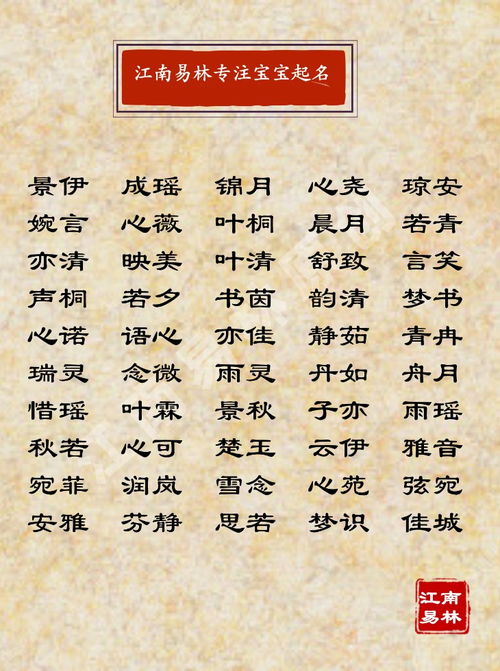 江南易林专注宝宝起名
景伊 成瑶 锦月 心尧 琼安
婉言 心薇 叶桐 晨月 若青
亦清 映美 叶清 舒致 言笑
声桐 若夕 书茵 韵清 梦书
心诺 语心 亦佳 静茹 青冉
瑞灵 念微 雨灵 丹如 舟月
惜瑶 叶霖 景秋 子亦 雨瑶
秋若 心可 楚玉 云伊 雅音
宛菲 润岚 雪念 心苑 弦宛
安雅 芬静 思若 梦识 佳城
江南
易林